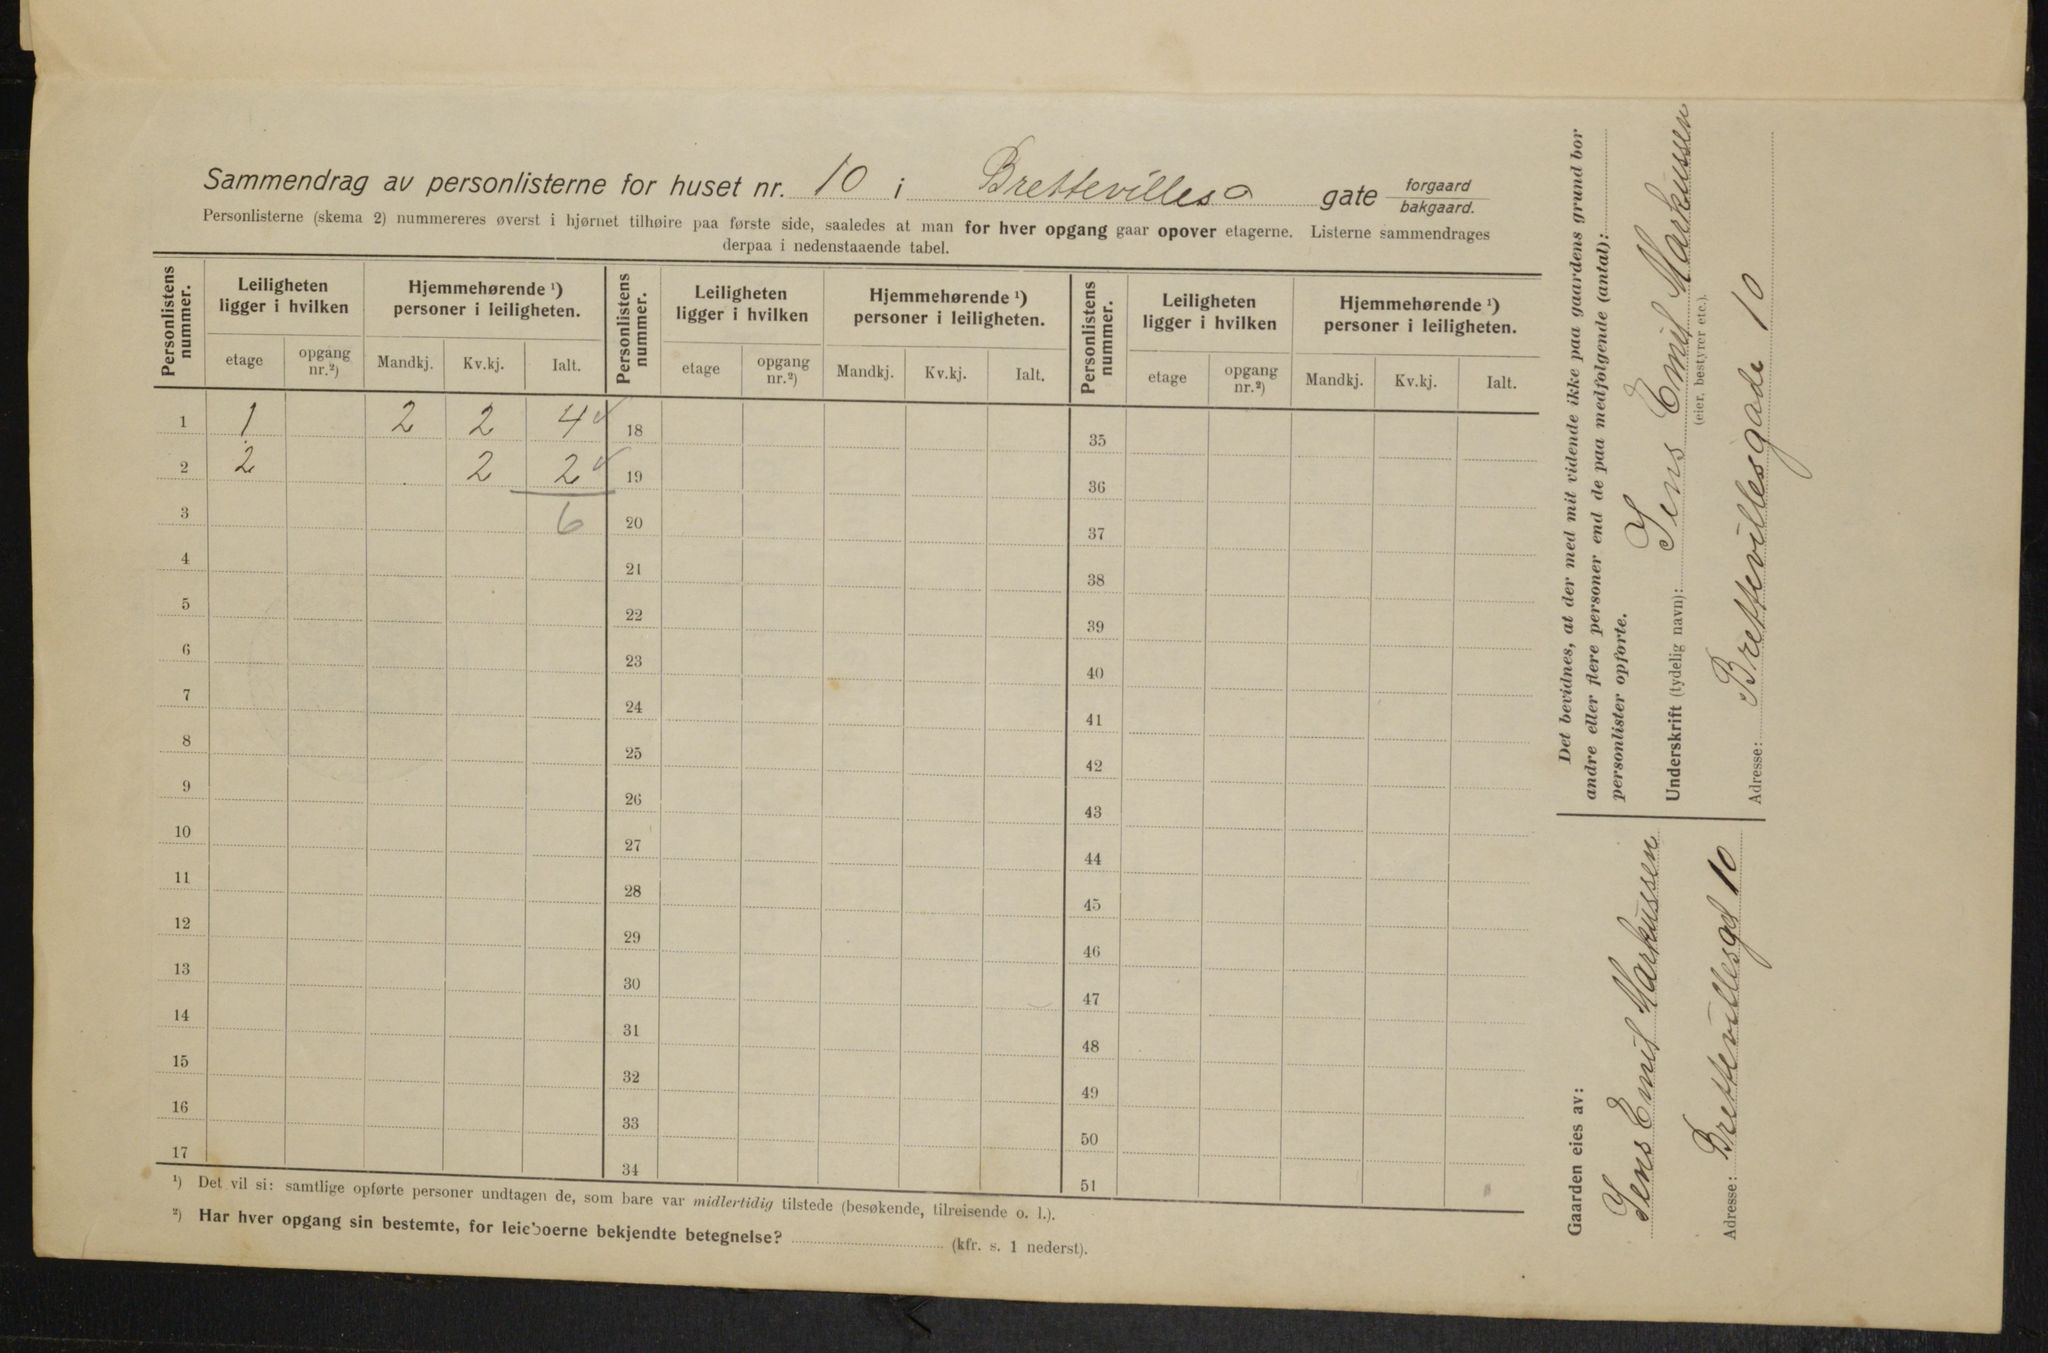 Sammendrag av personlisterne for huset nr. 10 i Brettevilles gate forgaard
bakgaard.
Personlisterne (skema 2) nummereres øverst i hjørnet tilhøire paa første side, saaledes at man for hver opgang gaar opover etagerne. Listerne sammendrages
derpaa i nedenstaaende tabel.
Personlistens nummer. Leiligheten ligger i hvilken Hjemmehørende ¹) personer i leiligheten. Personlistens nummer. Leiligheten ligger i hvilken Hjemmehørende ¹) personer i leiligheten. Personlistens nummer. Leiligheten ligger i hvilken Hjemmehørende ¹) personer i leiligheten.
etage opgang nr.²) Mandkj. Kv.kj. Ialt. etage opgang nr.²) Mandkj. Kv.kj. Ialt. etage opgang nr.²) Mandkj. Kv.kj. Ialt.
1 1 2 2 4 18 35
2 2 2 2 19 36
3 6 20 37
4 21 38
5 22 39
6 23 40
7 24 41
8 25 42
9 26 43
10 27 44
11 28 45
12 29 46
13 30 47
14 31 48
15 32 49
16 33 50
17 34 51
¹) Det vil si: samtlige opførte personer undtagen de, som bare var midlertidig tilstede (besøkende, tilreisende o. l.).
²) Har hver opgang sin bestemte, for leieboerne bekjendte betegnelse? (kfr. s. 1 nederst).
Det bevidnes, at der med mit vidende ikke paa gaardens grund bor
andre eller flere personer end de paa medfolgende (antal):
personlister opforte.
Underskrift (tydelig navn): Jens Emil Markussen
(eier, bestyrer etc.).
Adresse: Brettevillesgade 10
Gaarden eies av:
Jens Emil Markussen
Adresse: Brettevillesgd 10